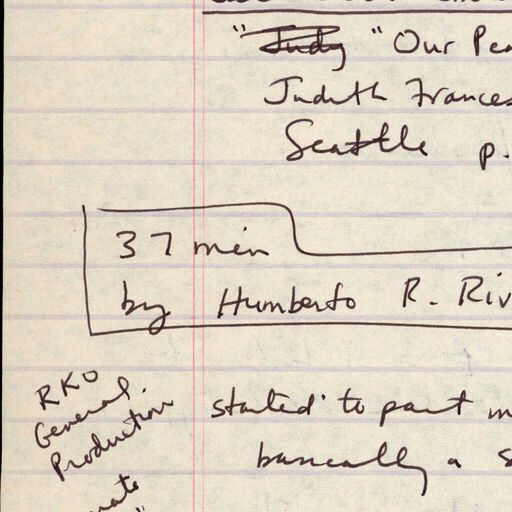 "Judy "Our Pea
Judith Frances
Seattle p.
37 min
by Humberto R. Riv
RKO
General.
Production
started to paint m
basically a s